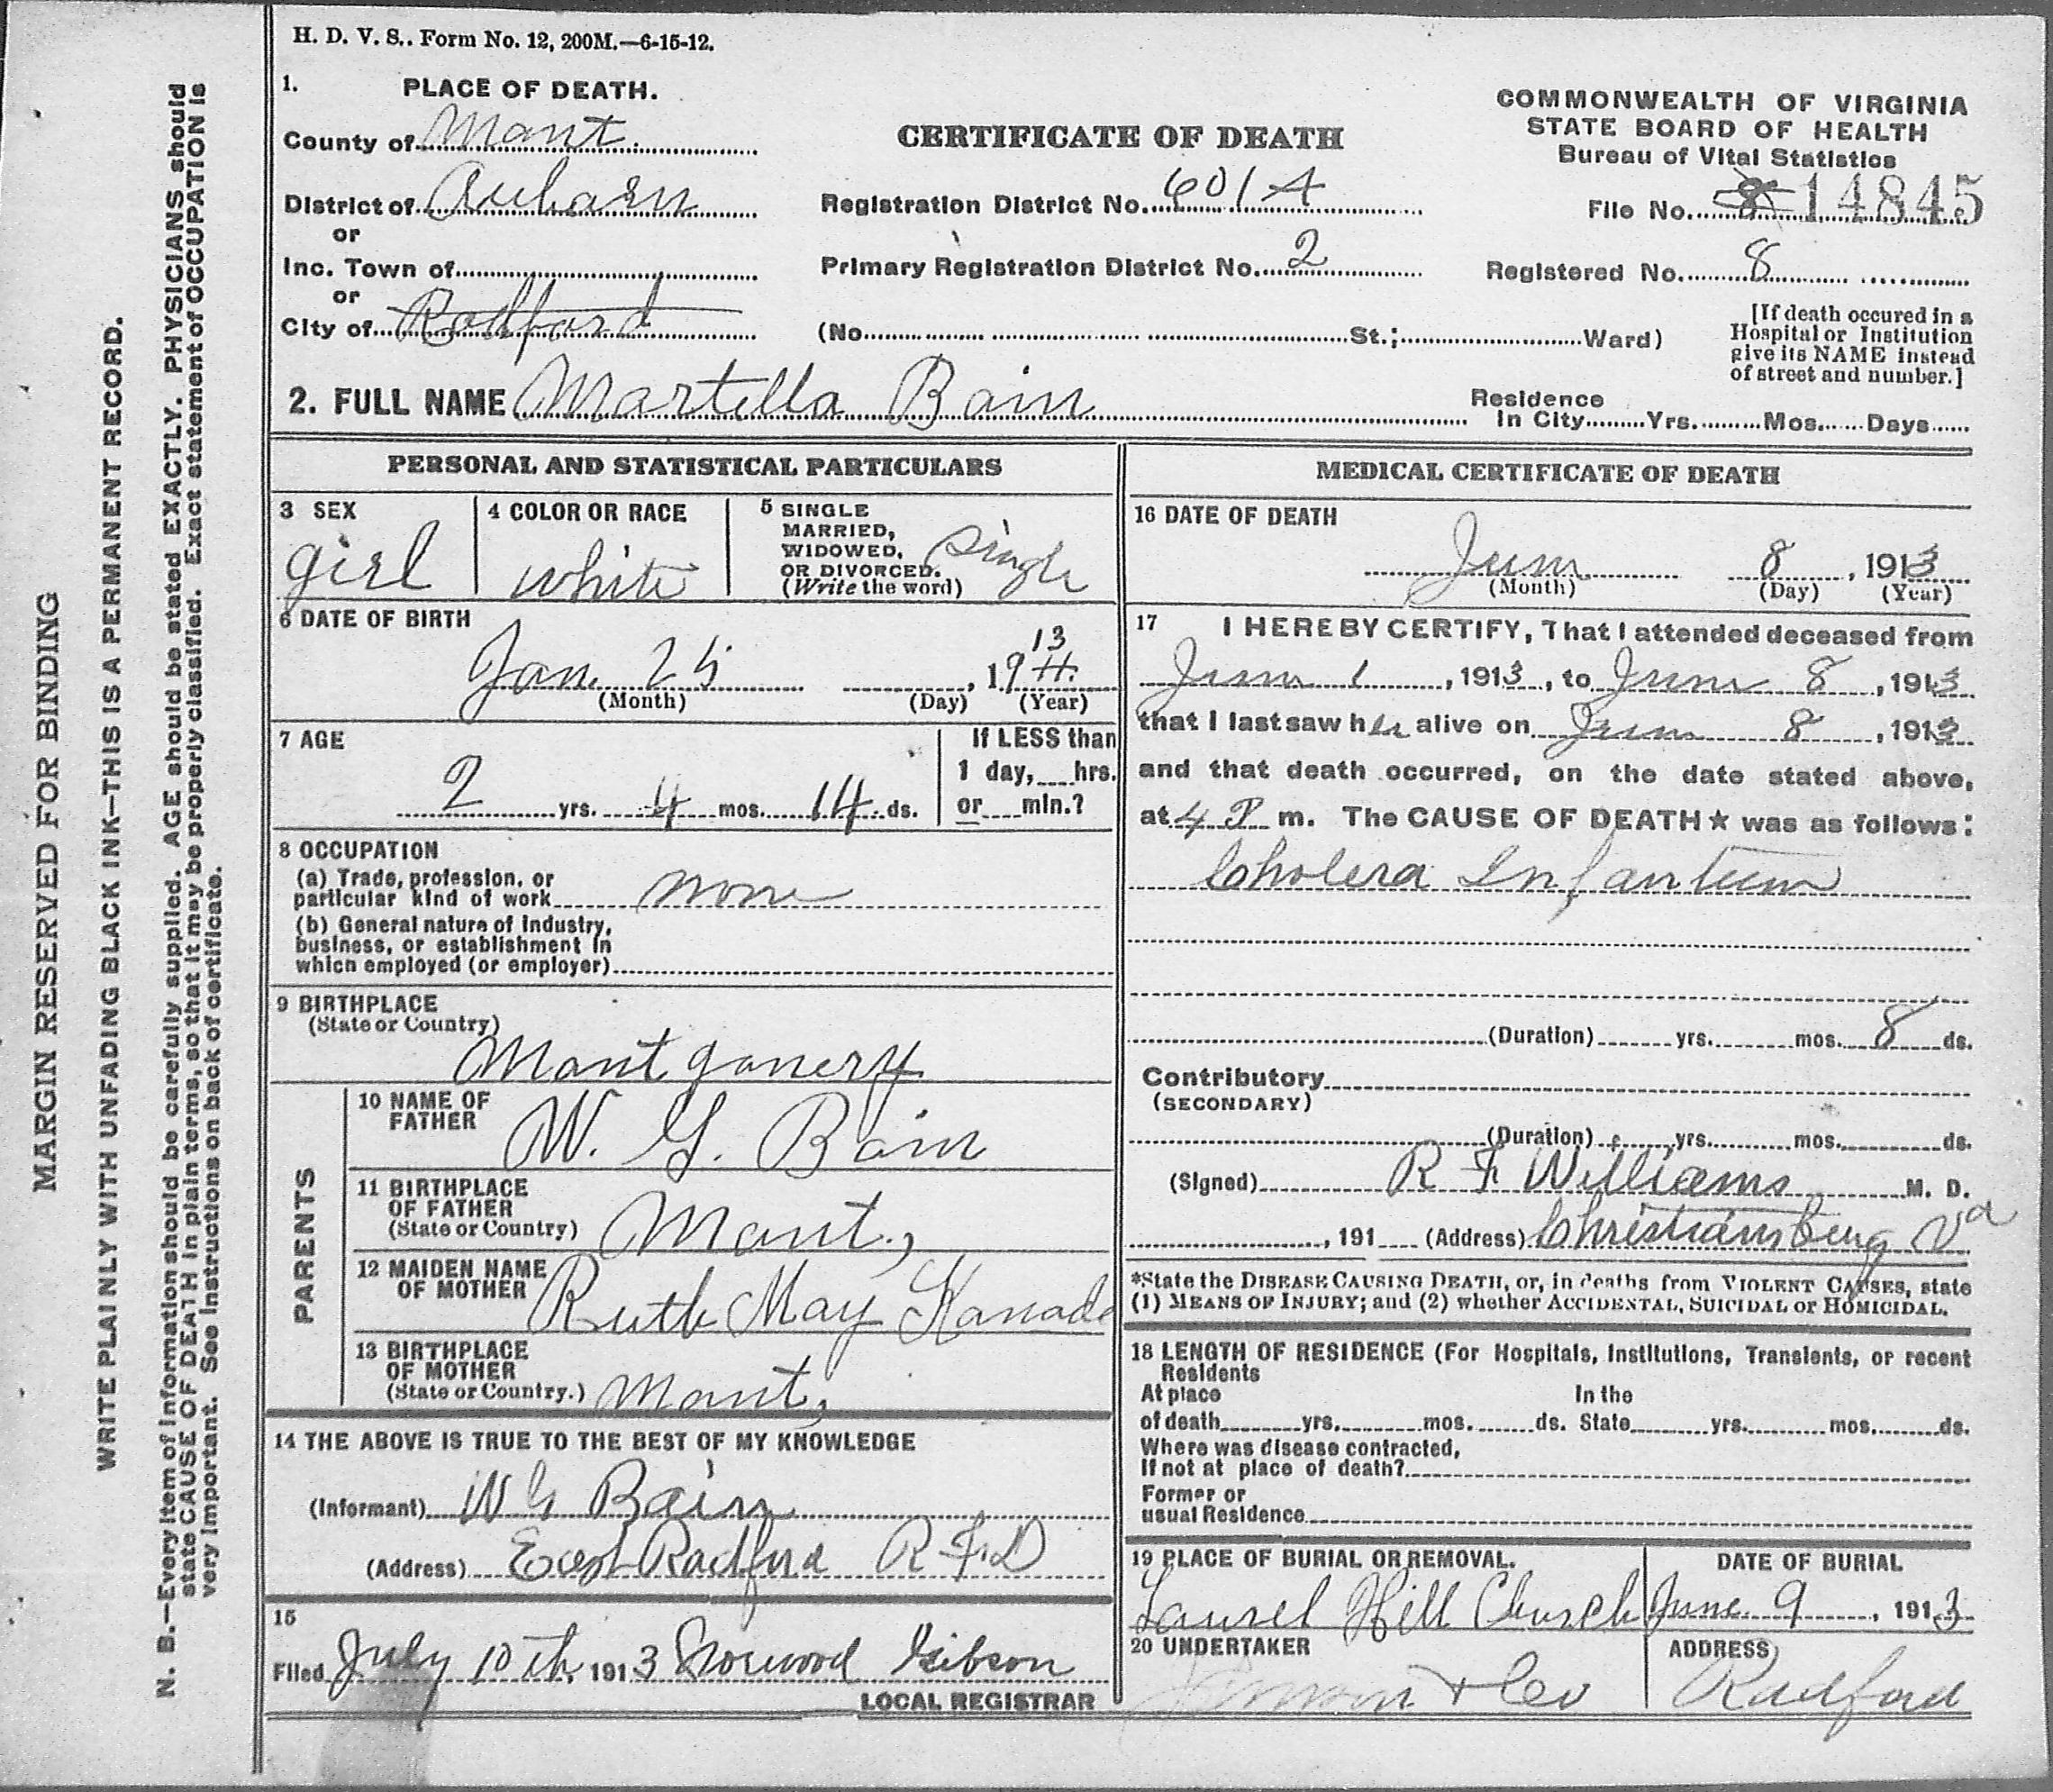 H. D. V. S.. Form No. 12, 200M.—6-15-12.
1. PLACE OF DEATH.
County of Mont.
District of Auburn
or
Inc. Town of
or
City of Radford
CERTIFICATE OF DEATH
Registration District No. 601A
Primary Registration District No. 2
(No. St.; Ward)
COMMONWEALTH OF VIRGINIA
STATE BOARD OF HEALTH
Bureau of Vital Statistics
File No. 8 14845
Registered No. 8
[If death occured in a
Hospital or Institution
give its NAME instead
of street and number.]
2. FULL NAME Martella Bain
Residence
In City Yrs. Mos. Days
PERSONAL AND STATISTICAL PARTICULARS
3 SEX
girl
4 COLOR OR RACE
white
5 SINGLE
MARRIED,
WIDOWED,
OR DIVORCED.
(Write the word)
single
6 DATE OF BIRTH
13
Jan. 25, 19 11.
(Month) (Day) (Year)
7 AGE
2 yrs. 4 mos. 14 ds.
If LESS than
1 day, hrs.
or min.?
8 OCCUPATION
(a) Trade, profession, or
particular kind of work none
(b) General nature of Industry,
business, or establishment in
which employed (or employer)
9 BIRTHPLACE
(State or Country)
Montgomery
PARENTS
10 NAME OF
FATHER
W. G. Bain
11 BIRTHPLACE
OF FATHER
(State or Country) Mont.,
12 MAIDEN NAME
OF MOTHER
Ruth May
13 BIRTHPLACE
OF MOTHER
(State or Country.) Mont,
14 THE ABOVE IS TRUE TO THE BEST OF MY KNOWLEDGE
(Informant) W G Bain
(Address) East Radford R F.D
15
Filed July 10th, 1913 Norwood Gibson
LOCAL REGISTRAR
MEDICAL CERTIFICATE OF DEATH
16 DATE OF DEATH
June 8, 1913
(Month) (Day) (Year)
17 I HEREBY CERTIFY, That I attended deceased from
June 1, 1913, to June 8, 1913
that I last saw her alive on June 8, 1913
and that death occurred, on the date stated above,
at 4 P m. The CAUSE OF DEATH★ was as follows:
Cholera Infantum
(Duration) yrs. mos. 8 ds.
Contributory
(SECONDARY)
(Duration) yrs. mos. ds.
(Signed) R F Williams M. D.
, 191 (Address) Christiansburg Va
*State the DISEASE CAUSING DEATH, or, in deaths from VIOLENT CAUSES, state
(1) MEANS OF INJURY; and (2) whether ACCIDENTAL, SUICIDAL or HOMICIDAL.
18 LENGTH OF RESIDENCE (For Hospitals, Institutions, Transients, or recent
Residents
At place In the
of death yrs. mos. ds. State yrs. mos. ds.
Where was disease contracted,
If not at place of death?
Former or
usual Residence
19 PLACE OF BURIAL OR REMOVAL.
Laurel Hill Church
DATE OF BURIAL
June 9, 1913
20 UNDERTAKER
& Co
ADDRESS
Radford
MARGIN RESERVED FOR BINDING
WRITE PLAINLY WITH UNFADING BLACK INK—THIS IS A PERMANENT RECORD.
N. B.—Every item of information should be carefully supplied. AGE should be stated EXACTLY. PHYSICIANS should
state CAUSE OF DEATH in plain terms, so that it may be properly classified. Exact statement of OCCUPATION is
very important. See instructions on back of certificate.